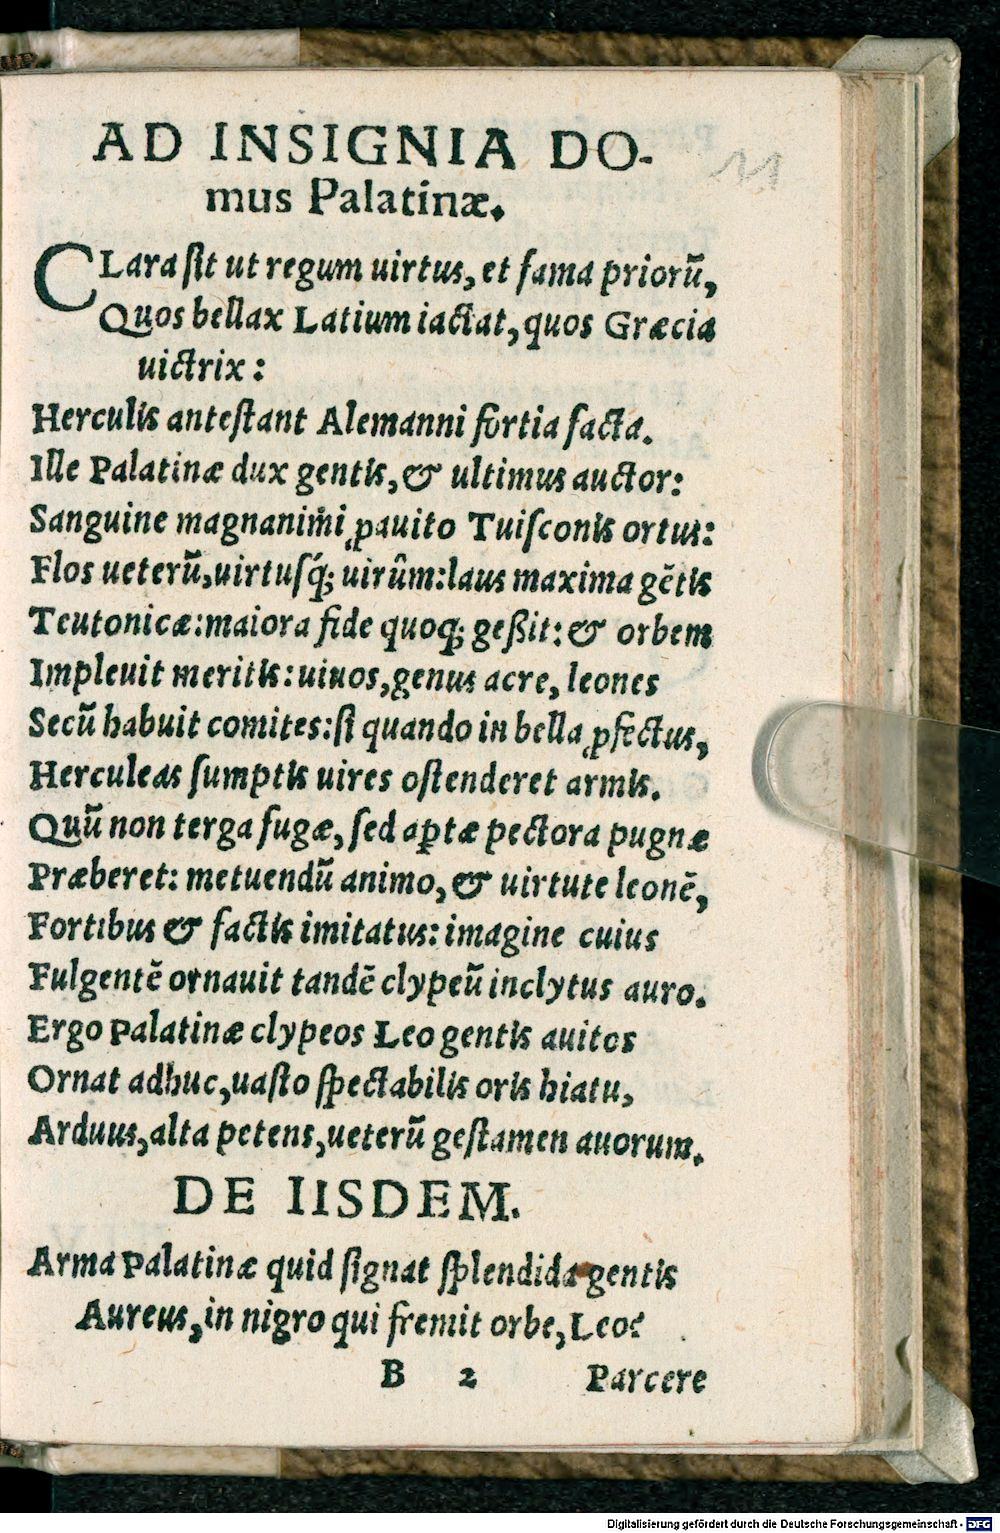 AD INSIGNIA DO-
11
mus Palatinæ.
CLara ſit ut regum uirtus, et fama priorũ,
Quos bellax Latium iactat, quos Græcia
uictrix :
Herculis anteſtant Alemanni fortia facta.
Ille Palatinæ dux gentis, & ultimus auctor:
Sanguine magnanimi ꝓauito Tuiſconis ortus:
Flos ueterũ, uirtuſq́; uirûm: laus maxima gẽtis
Teutonicæ: maiora fide quoq; geßit: & orbem
Impleuit meritis: uiuos, genus acre, leones
Secũ habuit comites: ſi quando in bella ꝓfectus,
Herculeas ſumptis uires oſtenderet armis.
Quũ non terga fugæ, ſed aptæ pectora pugnæ
Præberet: metuendũ animo, & uirtute leonẽ,
Fortibus & factis imitatus: imagine cuius
Fulgentẽ ornauit tandẽ clypeũ inclytus auro.
Ergo Palatinæ clypeos Leo gentis auitos
Ornat adhuc, uaſto ſpectabilis oris hiatu,
Arduus, alta petens, ueterũ geſtamen auorum.
DE IISDEM.
Arma Palatinæ quid ſignat ſplendida gentis
Aureus, in nigro qui fremit orbe, Leo?
B 2 Parcere
Digitalisierung gefördert durch die Deutsche Forschungsgemeinschaft - DFG